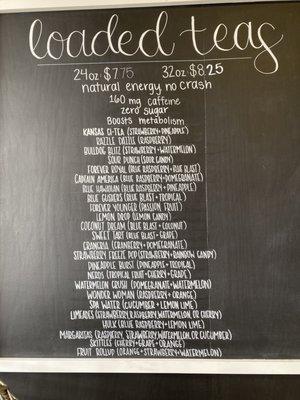 loaded teas
24oz: $7.75 32oz $8.25
natural energy no crash
160 mg caffeine
zero sugar
Boosts metabolism
KANSAS CI-TEA (STRAWBERRY+PINEAPPLE)
RAZZLE DAZZLE (RASPBERRY)
BULLDOG BLITZ (STRAWBERRY+WATERMELON)
SOUR PUNCH (SOUR CANDY)
FOREVER ROYAL (BLUE RASPBERRY+BLUE BLAST)
CAPTAIN AMERICA (BLUE RASPBERRY+POMEGRANATE)
BLUE HAWAIIAN (BLUE RASPBERRY+PINEAPPLE)
BLUE GUSHERS (BLUE BLAST+TROPICAL)
FOREVER YOUNGER (PASSION FRUIT)
LEMON DROP (LEMON CANDY)
COCONUT DREAM (BLUE BLAST+COCONUT)
SWEET TART (BLUE BLAST+GRAPE)
GRANCRIA (CRANBERRY+POMEGRANATE)
STRAWBERRY FREEZE POP (STRAWBERRY+RAINBOW CANDY)
PINEAPPLE BURST (PINEAPPLE+TROPICAL)
NERDS (TROPICAL FRUIT+CHERRY+GRAPE)
WATERMELON CRUSH (POMEGRANATE+WATERMELON)
WONDER WOMAN (RASPBERRY+ORANGE)
SPA WATER (CUCUMBER+LEMON LIME)
LIMEADES (STRAWBERRY, RASPBERRY, WATERMELON, OR CHERRY)
HULK (BLUE RASPBERRY+LEMON LIME)
MARGARITAS (RASPBERRY, STRAWBERRY, WATERMELON, OR CUCUMBER)
SKITTLES (CHERRY+GRAPE+ORANGE)
FRUIT ROLLUP (ORANGE+STRAWBERRY+WATERMELON)